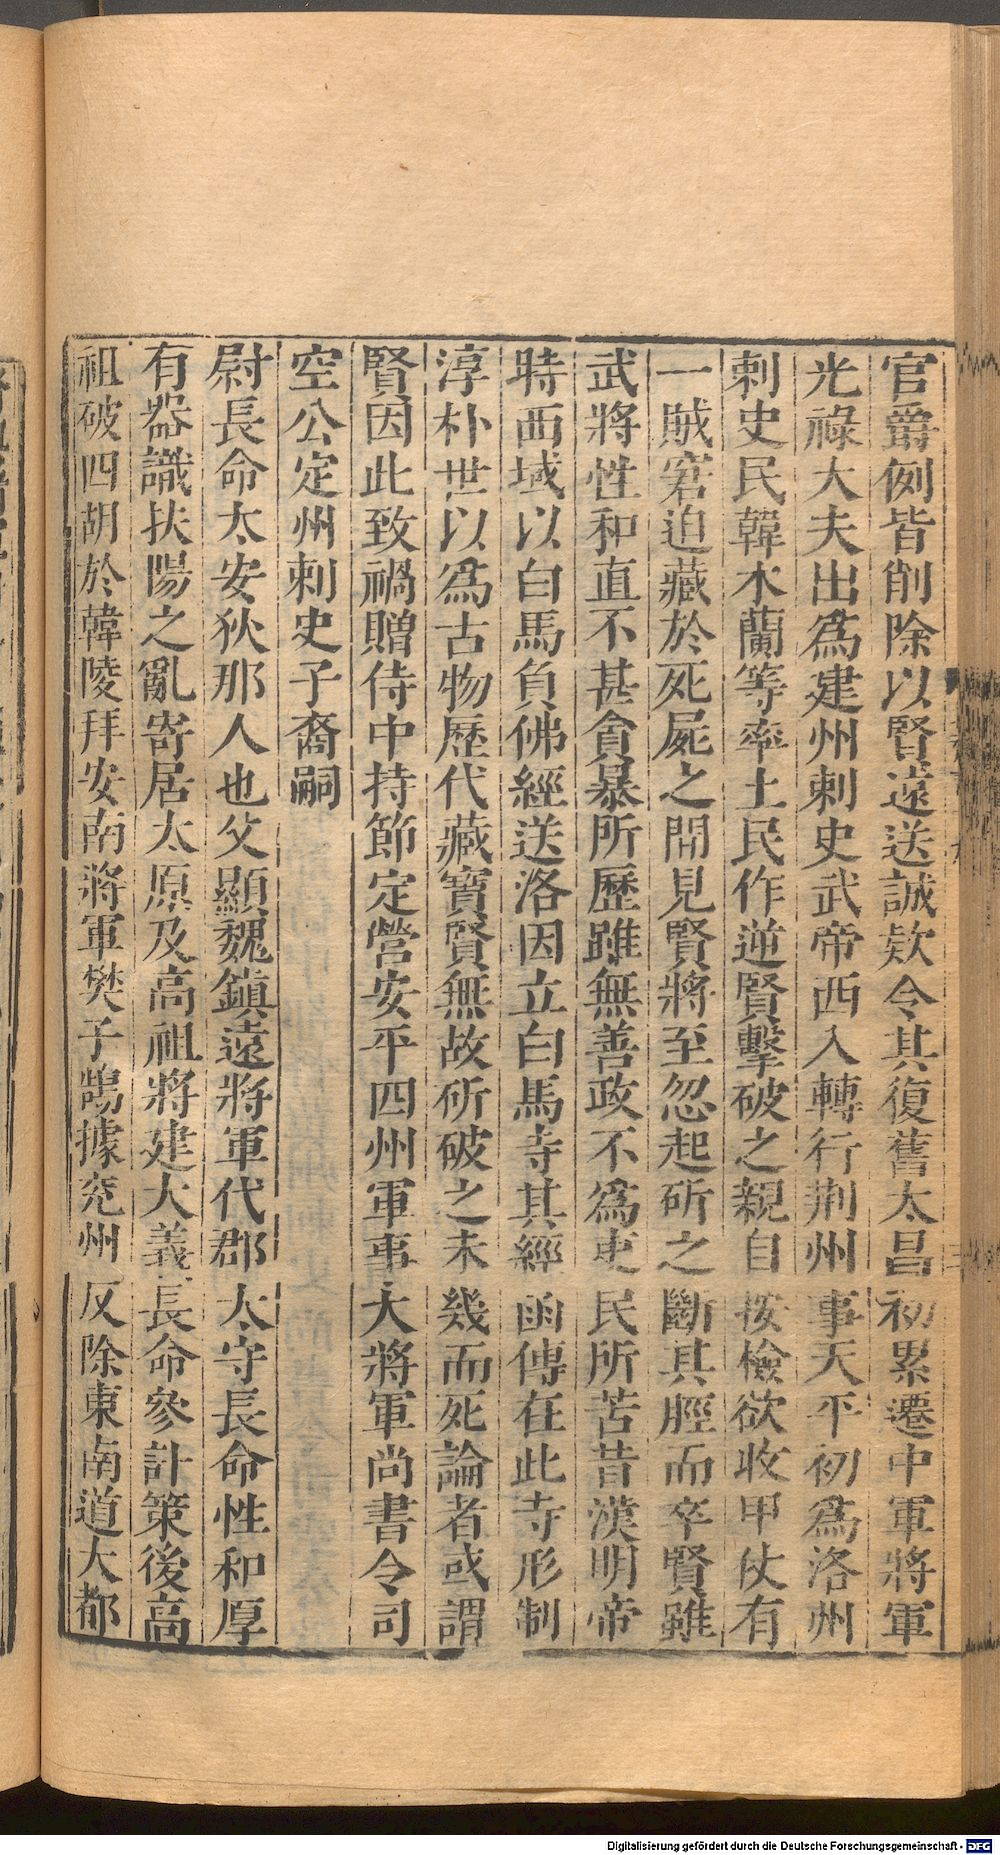 官爵例皆削除以賢遠送誠欵令其復舊太昌初累遷中軍將軍
光祿大夫出爲建州刺史武帝西入轉行荆州事天平初爲洛州
刺史民韓木蘭等率土民作逆賢擊破之親自按檢欲收甲仗有
一賊窘迫藏於死屍之間見賢將至忽起斫之斷其脛而卒賢雖
武將性和直不甚貪暴所歷雖無善政不爲吏民所苦昔漢明帝
時西域以白馬負佛經送洛因立白馬寺其經函傳在此寺形制
淳朴世以爲古物歷代藏寶賢無故斫破之未幾而死論者或謂
賢因此致禍贈侍中持節定營安平四州軍事大將軍尚書令司
空公定州刺史子裔嗣
尉長命太安狄那人也父顯魏鎮遠將軍代郡太守長命性和厚
有器識扶陽之亂寄居太原及高祖將建大義長命參計策後高
祖破四胡於韓陵拜安南將軍樊子鵠據兗州反除東南道大都
Digitalisierung gefördert durch die Deutsche Forschungsgemeinschaft - DFG